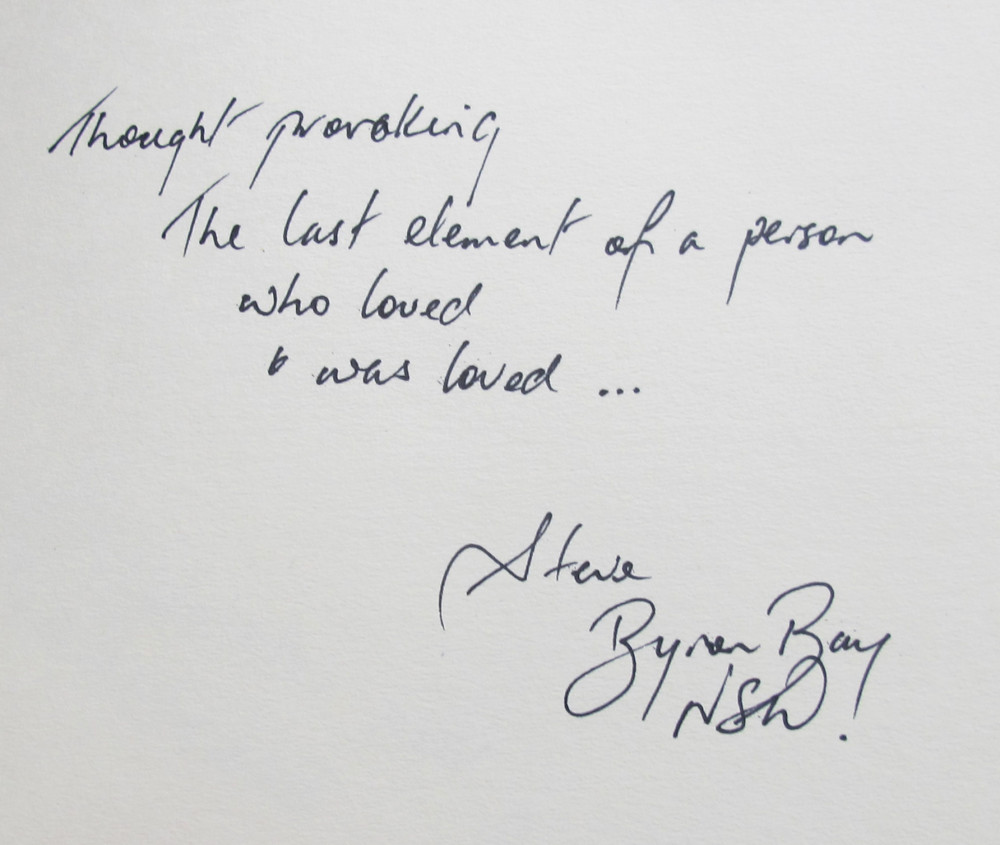 Thought provoking
The last element of a person
who loved
& was loved ...
Steve
Byron Bay
NSW!